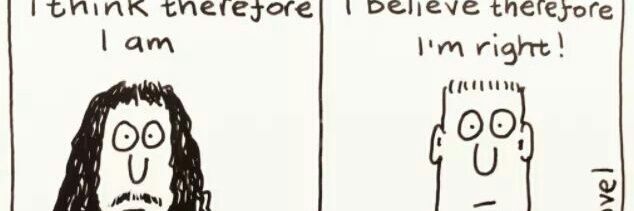 I think therefore
I am
I believe therefore
I'm right!